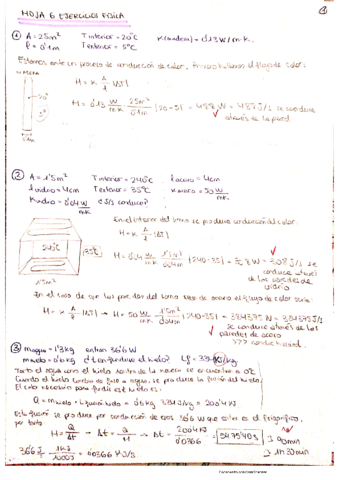 HOJA 6 EJERCICIOS FÍSICA
① A = 25m² T interior = 20°C K(madera) = 0'13 W/m·K.
l = 0'1m T exterior = 5°C
Estamos ante un proceso de conducción de calor, primero hallamos el flujo de calor:
H = K A/l |ΔT|
H = 0'13 W/m·K 25m²/0'1m |20-5| = 488 W = 488 J/s se conduce
a través de la pared
② A = 1'5m² T interior = 240°C l acero = 4cm
l vidrio = 4cm T exterior = 35°C K acero = 50 W/m·K
K vidrio = 0'4 W/m·K ¿J/s conduce?
En el interior del horno se produce conducción del calor.
H = K A/l |ΔT|
240°C 35°C
H = 0'4 W/m·K 1'5m²/0'04m |240-35| = 308 J/s se
conduce a través
de las paredes de
vidrio
1'5m²
En el caso de que las paredes del horno sean de acero el flujo de calor sería:
H = K A/l |ΔT| → H = 50 W/m·K 1'5m²/0'04m |240-35| = 384375 W = 384375 J/s
se conduce a través de las
paredes de acero
③ m agua = 1'3kg entran 36'6 W
m hielo = 0'6 kg ¿t en fundirse el hielo? Lf = 334 KJ/kg
Tanto el agua como el hielo dentro de la nevera se encuentran a 0°C
Cuando el hielo cambia de fase a agua, se produce la fusión del hielo.
El calor necesario para fundir este hielo es:
Q = m hielo · L fusión hielo = 0'6 kg 334 KJ/kg = 200'4 KJ
Esta fusión se produce por conducción de esos 36'6 W que entran en el frigorífico,
por tanto:
H = Q/Δt → Δt = Q/H → Δt = 200'4 KJ/0'0366 = 5475'40 s → 90 min
→ 1h 30 min
36'6 J/s 1KJ/1000J = 0'0366 KJ/s.